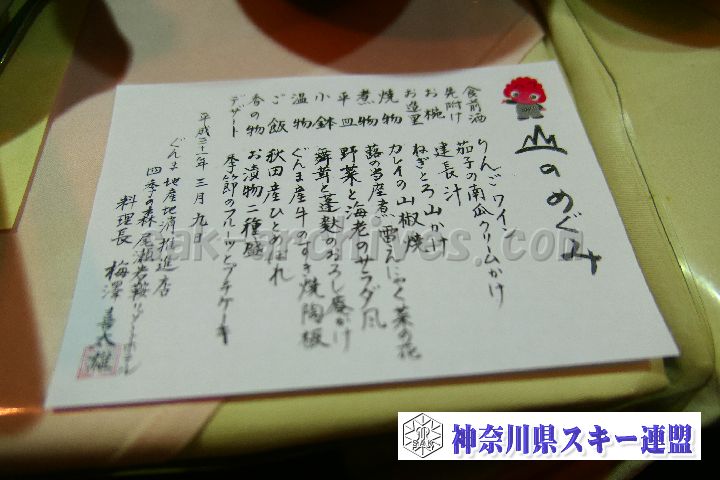 山のめぐみ
食前酒 りんごワイン
先附け 茄子の南瓜クリームかけ
お椀 建長汁
お造里 ねぎとろ山かけ
焼物 カレイの山椒焼
煮物 蕗の当座煮 雷こんにゃく 菜の花
平皿 野菜と海老のサラダ風
小鉢 舞茸と蓬麩のおろし庵かけ
温物 ぐんま産牛のすき焼陶板
ご飯 秋田産ひとめぼれ
香の物 お漬物二種盛
デザート 季節のフルーツとプチケーキ
平成三十一年三月九日
ぐんま地産地消推進店
四季の森尾瀬岩鞍リゾートホテル
料理長 梅澤
神奈川県スキー連盟